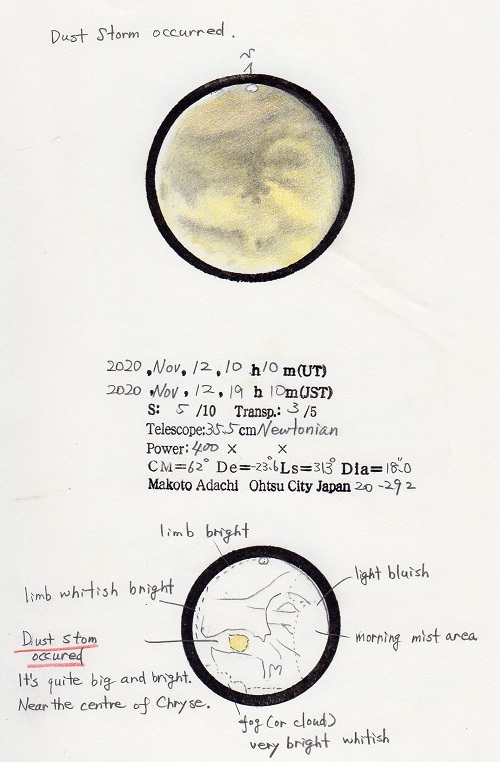 Dust Storm occurred.
N
2020, Nov, 12, 10 h 10 m(UT)
2020, Nov, 12, 19 h 10m(JST)
S: 5 /10 Transp.: 3 /5
Telescope:35.5cm Newtonian
Power: 400 × ×
CM=62° De=-23.6 Ls=313° Dia=18.″0
Makoto Adachi Ohtsu City Japan 20 -292
limb bright
light bluish
limb whitish bright
Dust stom
occured
morning mist area
It's quite big and bright.
Near the centre of Chryse.
fog (or cloud)
very bright whitish